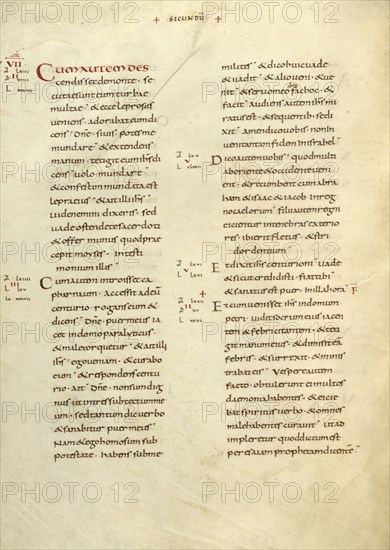 + SICUNDŪ +
VII
CUM AUTEM DES
cendisset de monte · se
cutae sunt eum turbae
multae · & ecce leprosus
veniens · adorabat eum di
cens · Dñe · si uis potes me
mundare · & extendens
manum · tetigit eum ihs di
cens · uolo · mundare ·
& confestim mundata est
lepra eius · & ait illi ihs ·
uide nemini dixeris · sed
uade ostende te sacerdoti
& offer munus quod prae
cepit moyses · in testi
monium illis ·
III
Cum autem introisset ca
pharnaum · accessit ad eū
centurio · rogans eum &
dicens · Dñe · puer meus ia
cet in domo paralyticus ·
& male torquetur · & ait illi
ihs · ego ueniam · & curabo
eum · & respondens centu
rio · ait · Dñe · non sum dig
nus ut intres sub tectum me
um · sed tantum dic uerbo
& sanabitur puer meus ·
Nam & ego homo sum sub
potestate · habens sub me
milites · & dico huic uade
& uadit · & alio ueni · & ue
nit · & seruo meo fac hoc · &
facit · Audiens autem ihs mi
ratus est · & sequentib: se di
xit · amen dico uobis · non in
ueni tantam fidem in israhel ·
V
Dico autem uobis · quod mul ti
ab oriente & occidente ueni
ent · & recumbent cum abra
ham · & isac & iacob in reg
no caelorum · filii autem regni
eicientur in tenebras exterio
res · ibi erit fletus · & stri
dor dentium ·
V
Et dixit ihs centurioni · uade
& sicut credidisti · fiat tibi
& sanatus est puer · in illa hora ·
+
II
Et cum uenisset ihs in domum
petri · uidit socrum eius iacen
tem · & febricitantem · & te
tigit manum eius · & dimisit eā
febris · & surrexit · & minis
trabat eis · Vespere autem
facto · obtulerunt ei multos
daemonia habentes · & eicie
bat spiritus uerbo · & omnes
male habentes curauit · ut ad
impleretur quod dictum est
per esaiam prophetam dicentē ·